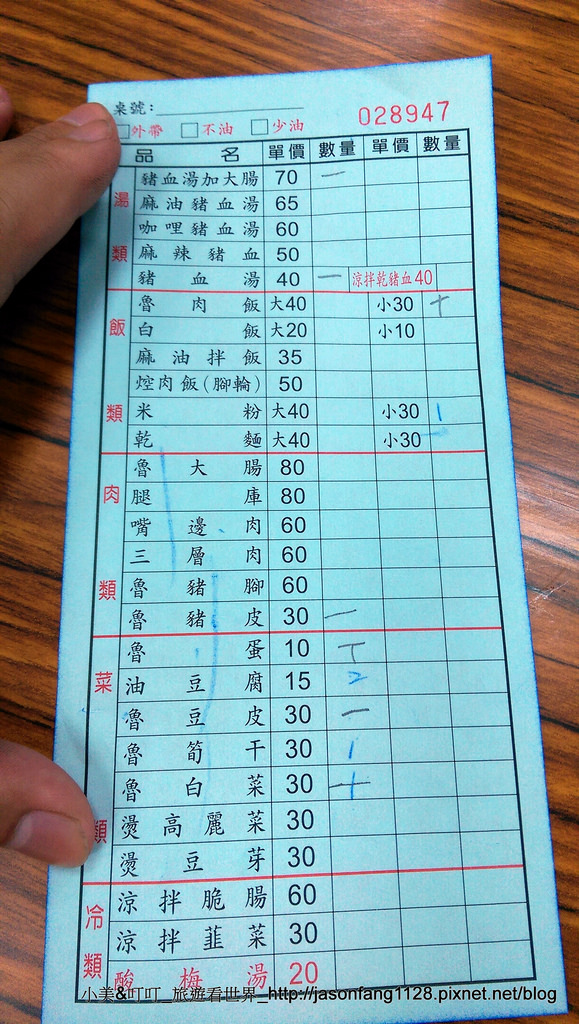 桌號：
028947
□外帶 □不油 □少油
品名 單價 數量 單價 數量
湯類
豬血湯加大腸 70 一
麻油豬血湯 65
咖哩豬血湯 60
麻辣豬血 50
豬血湯 40 一 涼拌乾豬血40
飯類
魯肉飯 大40 小30
白飯 大20 小10
麻油拌飯 35
焢肉飯(腳輪) 50
米粉 大40 小30 1
乾麵 大40 小30 一
肉類
魯大腸 80
腿庫 80
嘴邊肉 60
三層肉 60
魯豬腳 60
魯豬皮 30 一
菜類
魯蛋 10 T
油豆腐 15 2
魯豆皮 30 一
魯筍干 30 1
魯白菜 30
燙高麗菜 30
燙豆芽 30
冷類
涼拌脆腸 60
涼拌韮菜 30
酸梅湯 20
小美&叮叮_旅遊看世界_http://jasonfang1128.pixnet.net/blog